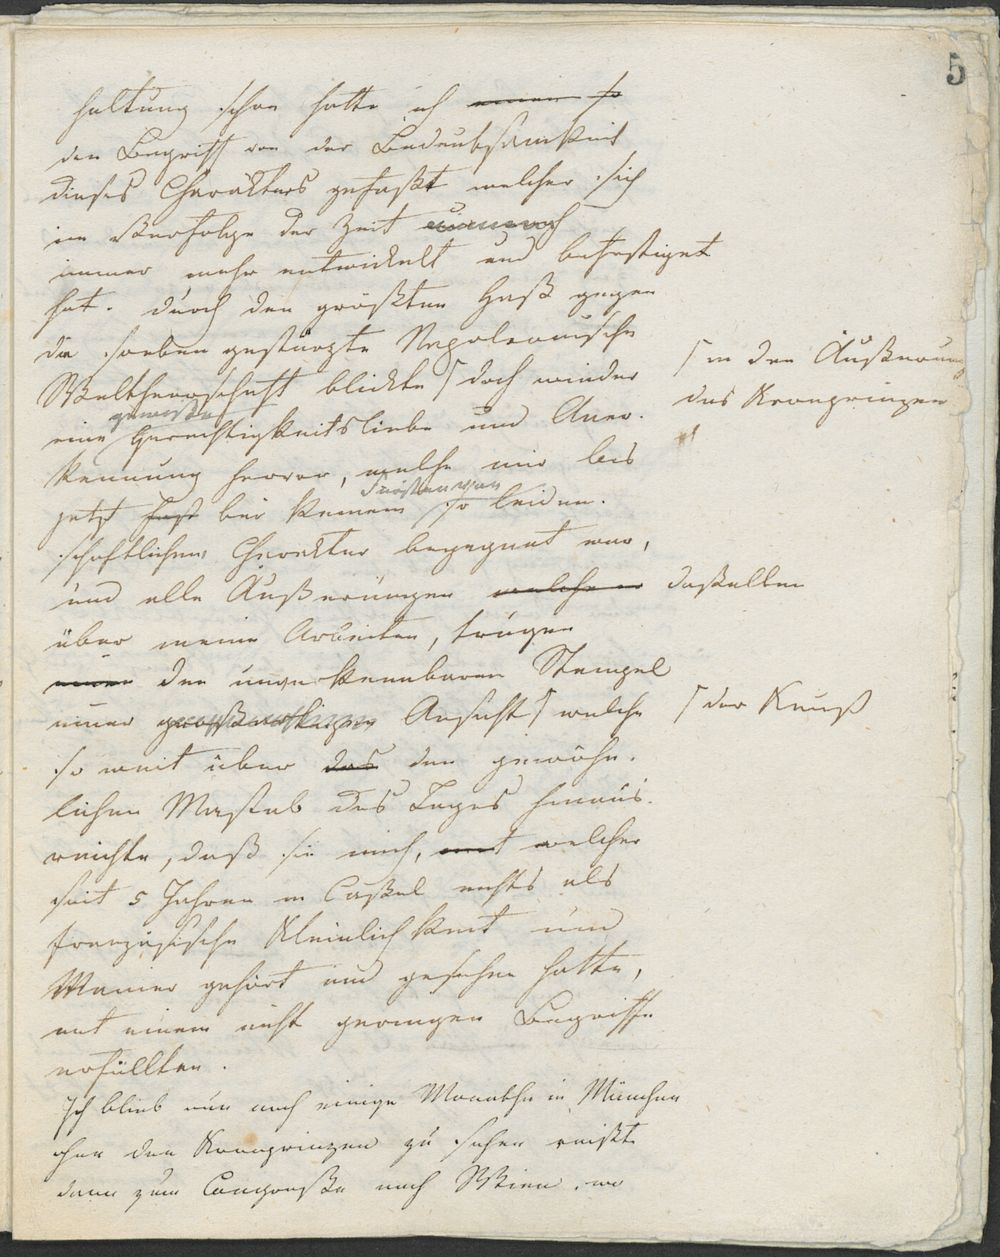 5
haltung schon hatte ich einen so
den Begriff von der Bedeutsamkeit
dieses Charakters gefaßt welcher sich
im Verfolge der Zeit
immer mehr entwickelt und befestiget
hat. Durch den größten Haß gegen
die soeben gestürzte Napoleonische
Weltherrschaft blickte ſ doch wieder
ſ in den Äußerungen
des Kronprinzen
gewiße
eine Gerechtigkeitsliebe und Aner-
kennung hervor, welche mir bis
jetzt fast bei keinem so leiden-
Fürsten von
schaftlichem Charakter begegnet war,
und alle Äußerungen welche er desselben
über meine Arbeiten, trugen
einen den unverkennbaren Stempel
einer großartigen Ansicht ſ welche
ſ der Kunst
so weit über das den gewöhn-
lichen Maßstab des Tages hinaus-
reichte, daß sie mich, mit welcher
seit 5 Jahren in Caßel nichts als
französische Kleinlichkeit und
Manier gehört und gesehen hatte,
mit einem nicht geringen Begriffe
erfüllten.
Ich blieb nun noch einige Monathe in München
ohne den Kronprinzen zu sehen reißte
dann zum Congreße nach Wien, wo